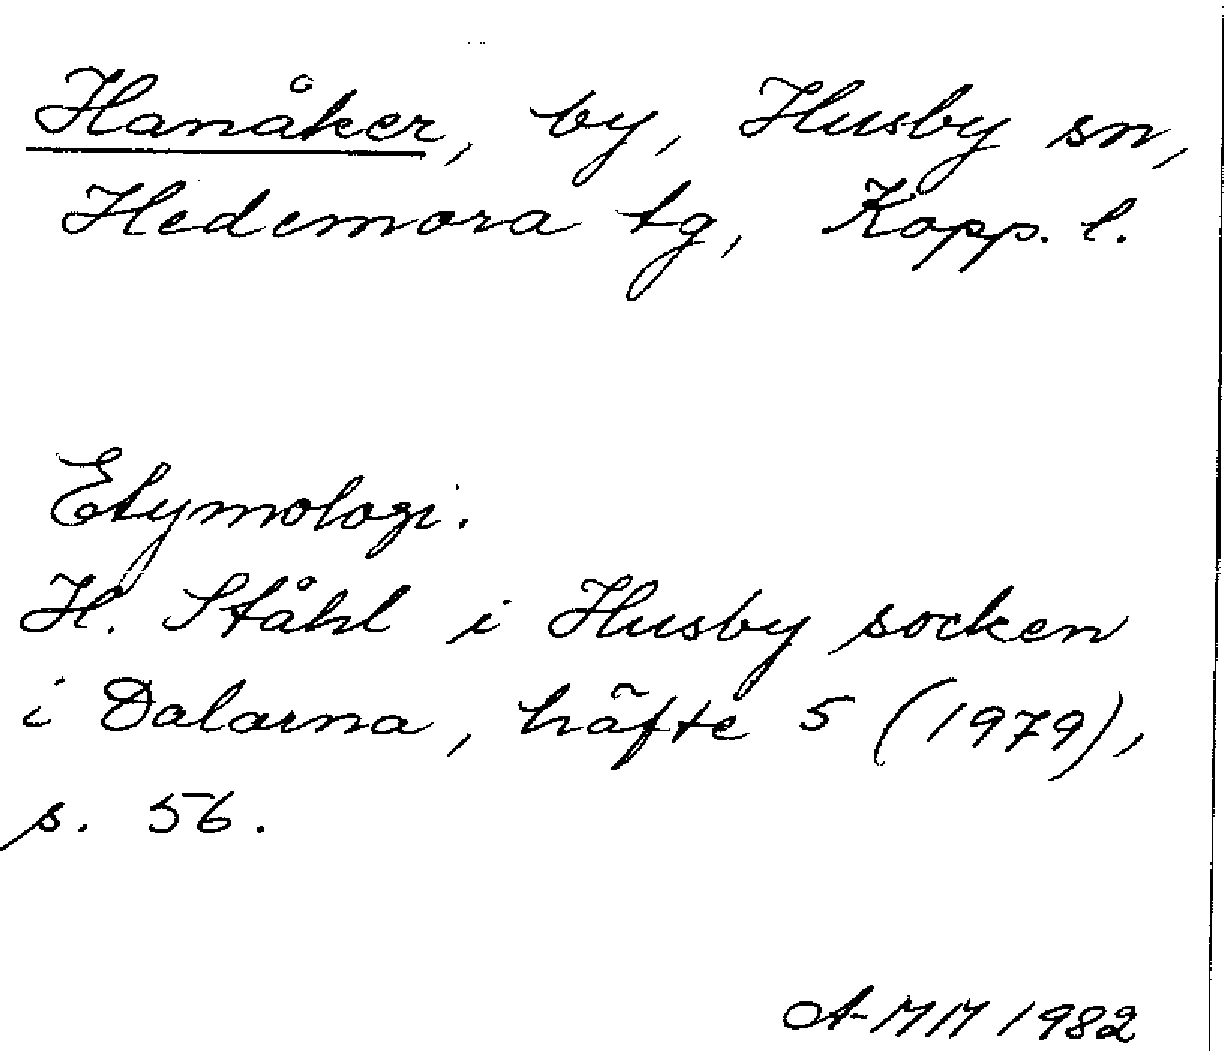 Hanåker, by, Husby sn,
Hedemora tg, Kopp. l.
Etymologi.
H. Ståhl i Husby socken
i Dalarna, häfte 5 (1979),
s. 56.
A-MM 1982